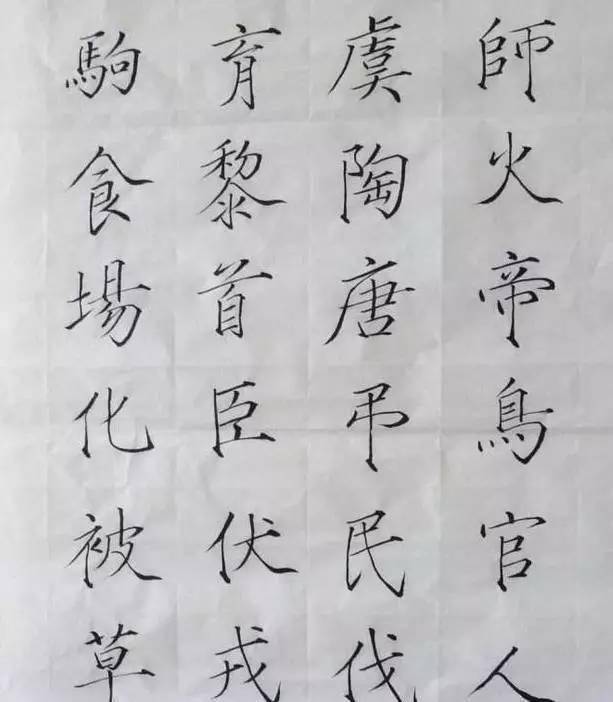 師火帝鳥官人
虞陶唐弔民伐
育黎首臣伏戎
駒食場化被草